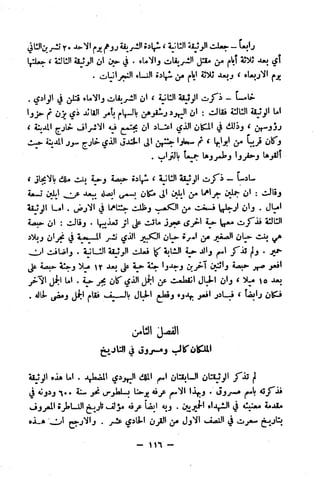 رابعاً – جعلت الوثيقة الثانية ، شهادة الشريفة روهم يوم الاحد ٢٠ تشرين الثاني
أي بعد ثلاثة أيام من مقتل الشريفات والاماء . في حين ان الوثيقة الثالثة ، جعلتها
يوم الاربعاء ، وبعد ثلاثة ايام من شهادة النساء النجرانيات .
خامساً – ذكرت الوثيقة الثانية ، ان الشريفات والاماء قتلن في الوادي .
اما الوثيقة الثالثة فقالت : ان اليهود رشقوهن بالسهام بأمر القائد ذي يزن ثم حزوا
رؤوسهن ، وذلك في المكان الذي اعتاد ان يجتمع فيه الاشراف خارج المدينة ،
وكان قريباً من ابوابها ، ثم سحلوا جثثهن الى الخندق الذي خارج سور المدينة حيث
ألقوها وحفروا وطمروها جميعاً بالتراب .
سادساً – ذكرت الوثيقة الثانية ، شهادة حبصة وحية بنت ملك بالايجاز ،
وقالت : ان جملين جراهما من ايلين الى مكان يسمى ابصلد يبعد عن ايلين تسعة
اميال . وان ارجلها فسخت من الكعب وظلت جثتاهما في الارض . اما الوثيقة
الثالثة فذكرت معها حية اخرى عجوز ماتت على اثر تعذيبها . وقالت : ان حبصة
هي بنت حيان الصغير من اسرة حيان الكبير الذي نشر المسيحية في نجران وبلاد
حمير . ولم تذكر اسم والد حية الشابة كما فعلت الوثيقة الثانية . واضافت ان
افعو صهر حبصة واثنين آخرين وجدوا جثة حية على بعد ١٢ ميلا وجثة حبصة على
بعد ١٥ ميلا ، وان الحبال انقطعت عن الجمل الذي كان يجر حية . اما الجمل الآخر
فكان رابضاً ، فبادر افعو بهدوء وقطع الحبال بالسيف فقام الجمل ومضى لحاله .
الفصل الثامن
الملكان كالب ومسروق في التاريخ
لم تذكر الوثيقتان السابقتان اسم الملك اليهودي المضطهد . اما هذه الوثيقة
فذكرته باسم مسروق . وبهذا الاسم عرفه يوحنا بسلطوس نحو سنة ٦٠٠ ودونه في
مقدمة معنيثه في الشهداء الحميريين . وبه ايضاً عرفه مؤلف تاريخ النساطرة المعروف
بتاريخ سعرت في النصف الاول من القرن الحادي عشر . والارجح ان هذه
– ١١٦ –